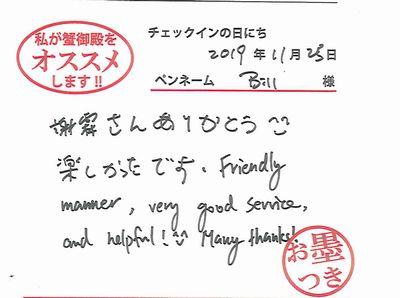 私が蟹御殿を
オススメ
します!!
チェックインの日にち
2019年11月25日
ペンネーム Bill 様
謝霖さんありがとう
楽しかったです、Friendly
manner, very good service,
and helpful! Many thanks!
お墨
つき